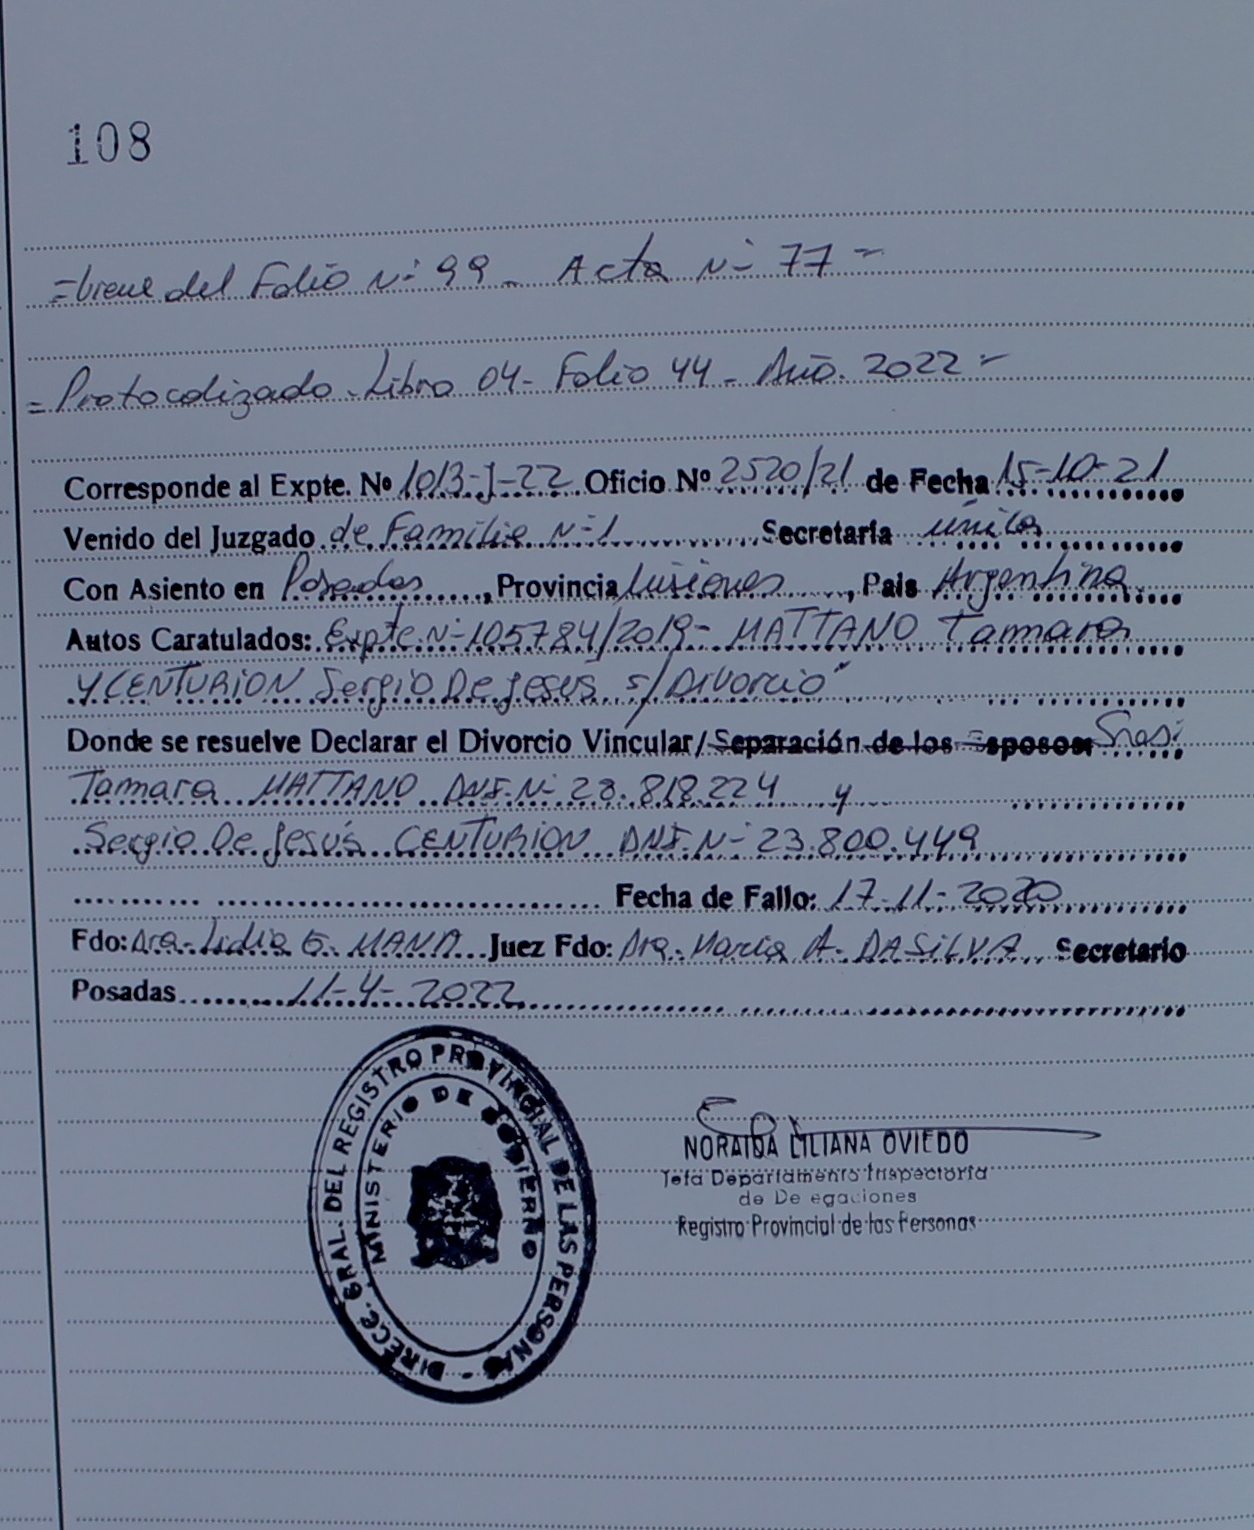 108
=Viene del Folio N- 99 - Acta N- 77 =
= Protocolizado - Libro 04 - Folio 44 - Año. 2022 -
Corresponde al Expte. Nº 1013-J-22 Oficio Nº 2520/21 de Fecha 15-10-21
Venido del Juzgado de Familia N-1 Secretaría única
Con Asiento en Posadas, Provincia Misiones, Pais Argentina
Autos Caratulados: Expte N- 105784/2019 - MATTANO Tamara
Y CENTURION Sergio De Jesús s/Divorcio"
Donde se resuelve Declarar el Divorcio Vincular/Separación de los Esposos: Sres:
Tamara MATTANO DNI. N- 28.818.224 y
Sergio De Jesús CENTURION DNI. N- 23.800.449
Fecha de Fallo: 17-11-2020
Fdo: Dra. Lidia E. MANA Juez Fdo: Dra. Maria A. DASILVA Secretario
Posadas 11-4-2022
DIRECC. GRAL. DEL REGISTRO PROVINCIAL DE LAS PERSONAS -
MINISTERIO DE GOBIERNO
NORAIDA LILIANA OVIEDO
Jefa Departamento Inspectoría
de De egaciones
Registro Provincial de las Personas